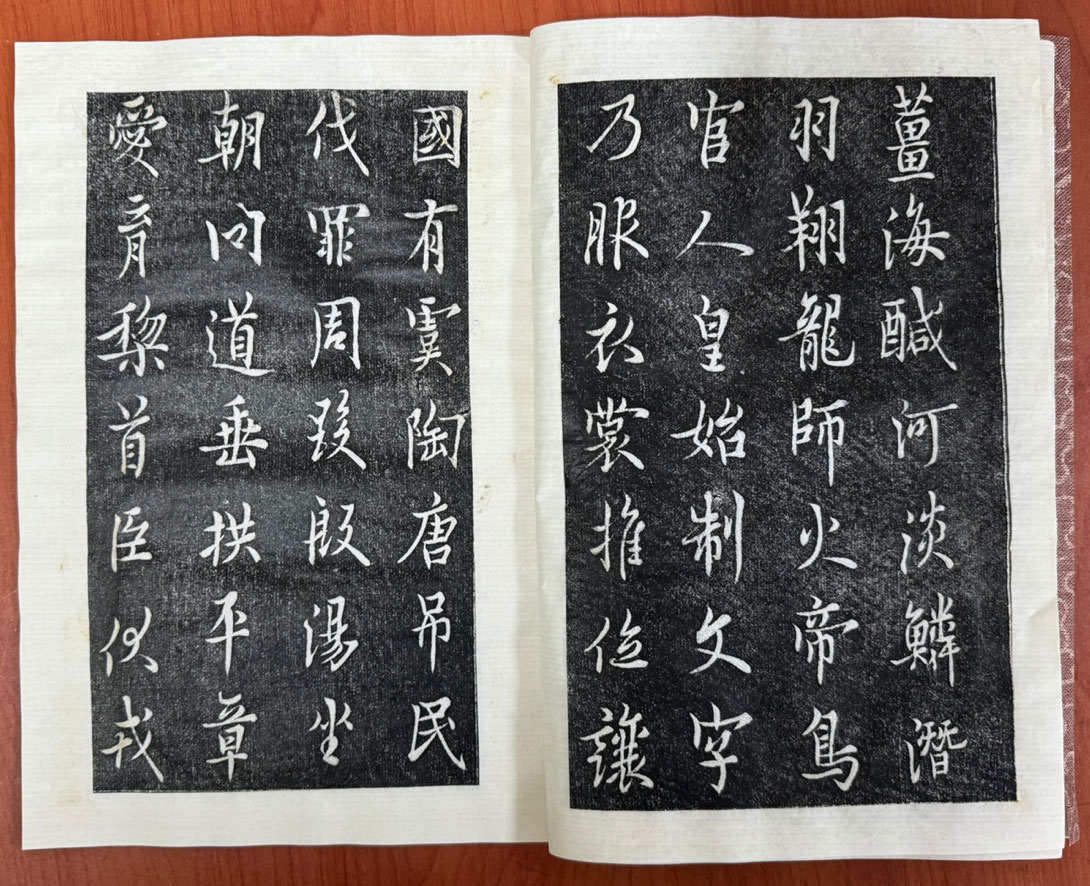 薑海醎河淡鱗潛
羽翔龍師火帝鳥
官人皇始制文字
乃服衣裳推位讓
國有虞陶唐吊民
伐罪周發殷湯坐
朝問道垂拱平章
愛育黎首臣伏戎